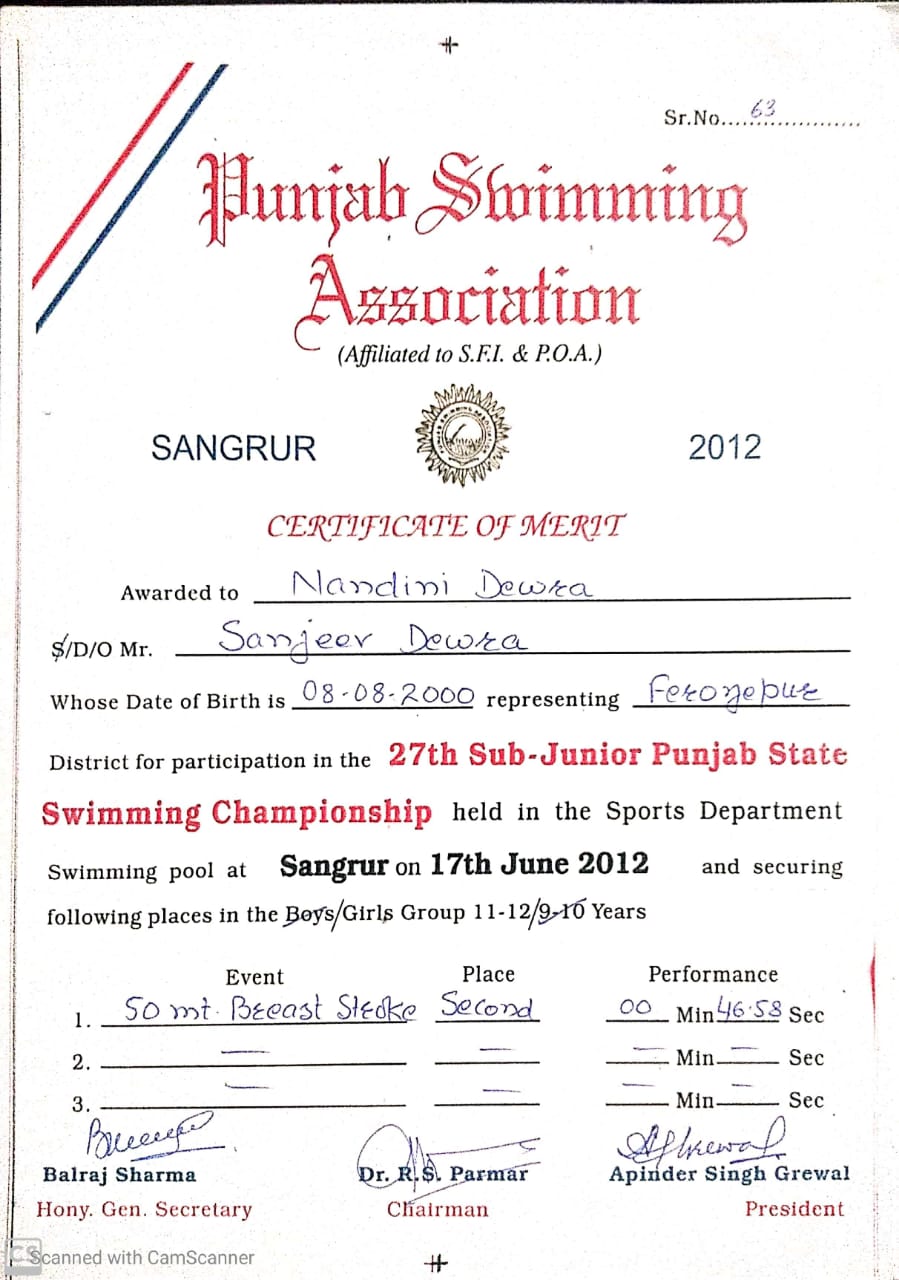 Sr.No....63....................
Punjab Swimming
Association
(Affiliated to S.F.I. & P.O.A.)
SANGRUR 2012
CERTIFICATE OF MERIT
Awarded to Nandini Dewra
S/D/O Mr. Sanjeev Dewra
Whose Date of Birth is 08-08-2000 representing Ferozepur
District for participation in the 27th Sub-Junior Punjab State
Swimming Championship held in the Sports Department
Swimming pool at Sangrur on 17th June 2012 and securing
following places in the Boys/Girls Group 11-12/9-10 Years
Event Place Performance
1. 50 mt. Breast Stroke Second 00 Min 46.58 Sec
2. — — — Min — Sec
3. — — — Min — Sec
Balraj Sharma Dr. R.S. Parmar Apinder Singh Grewal
Hony. Gen. Secretary Chairman President
CS Scanned with CamScanner